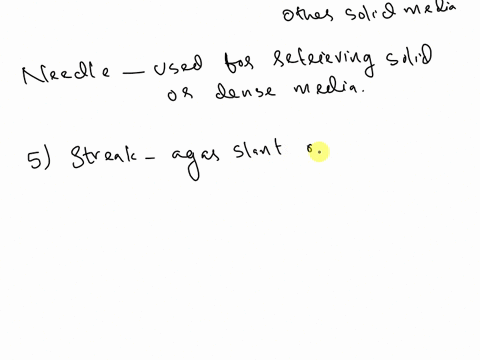 other solid media
Needle – used for retrieving solid
or dense media.
5) Streak – agar slant